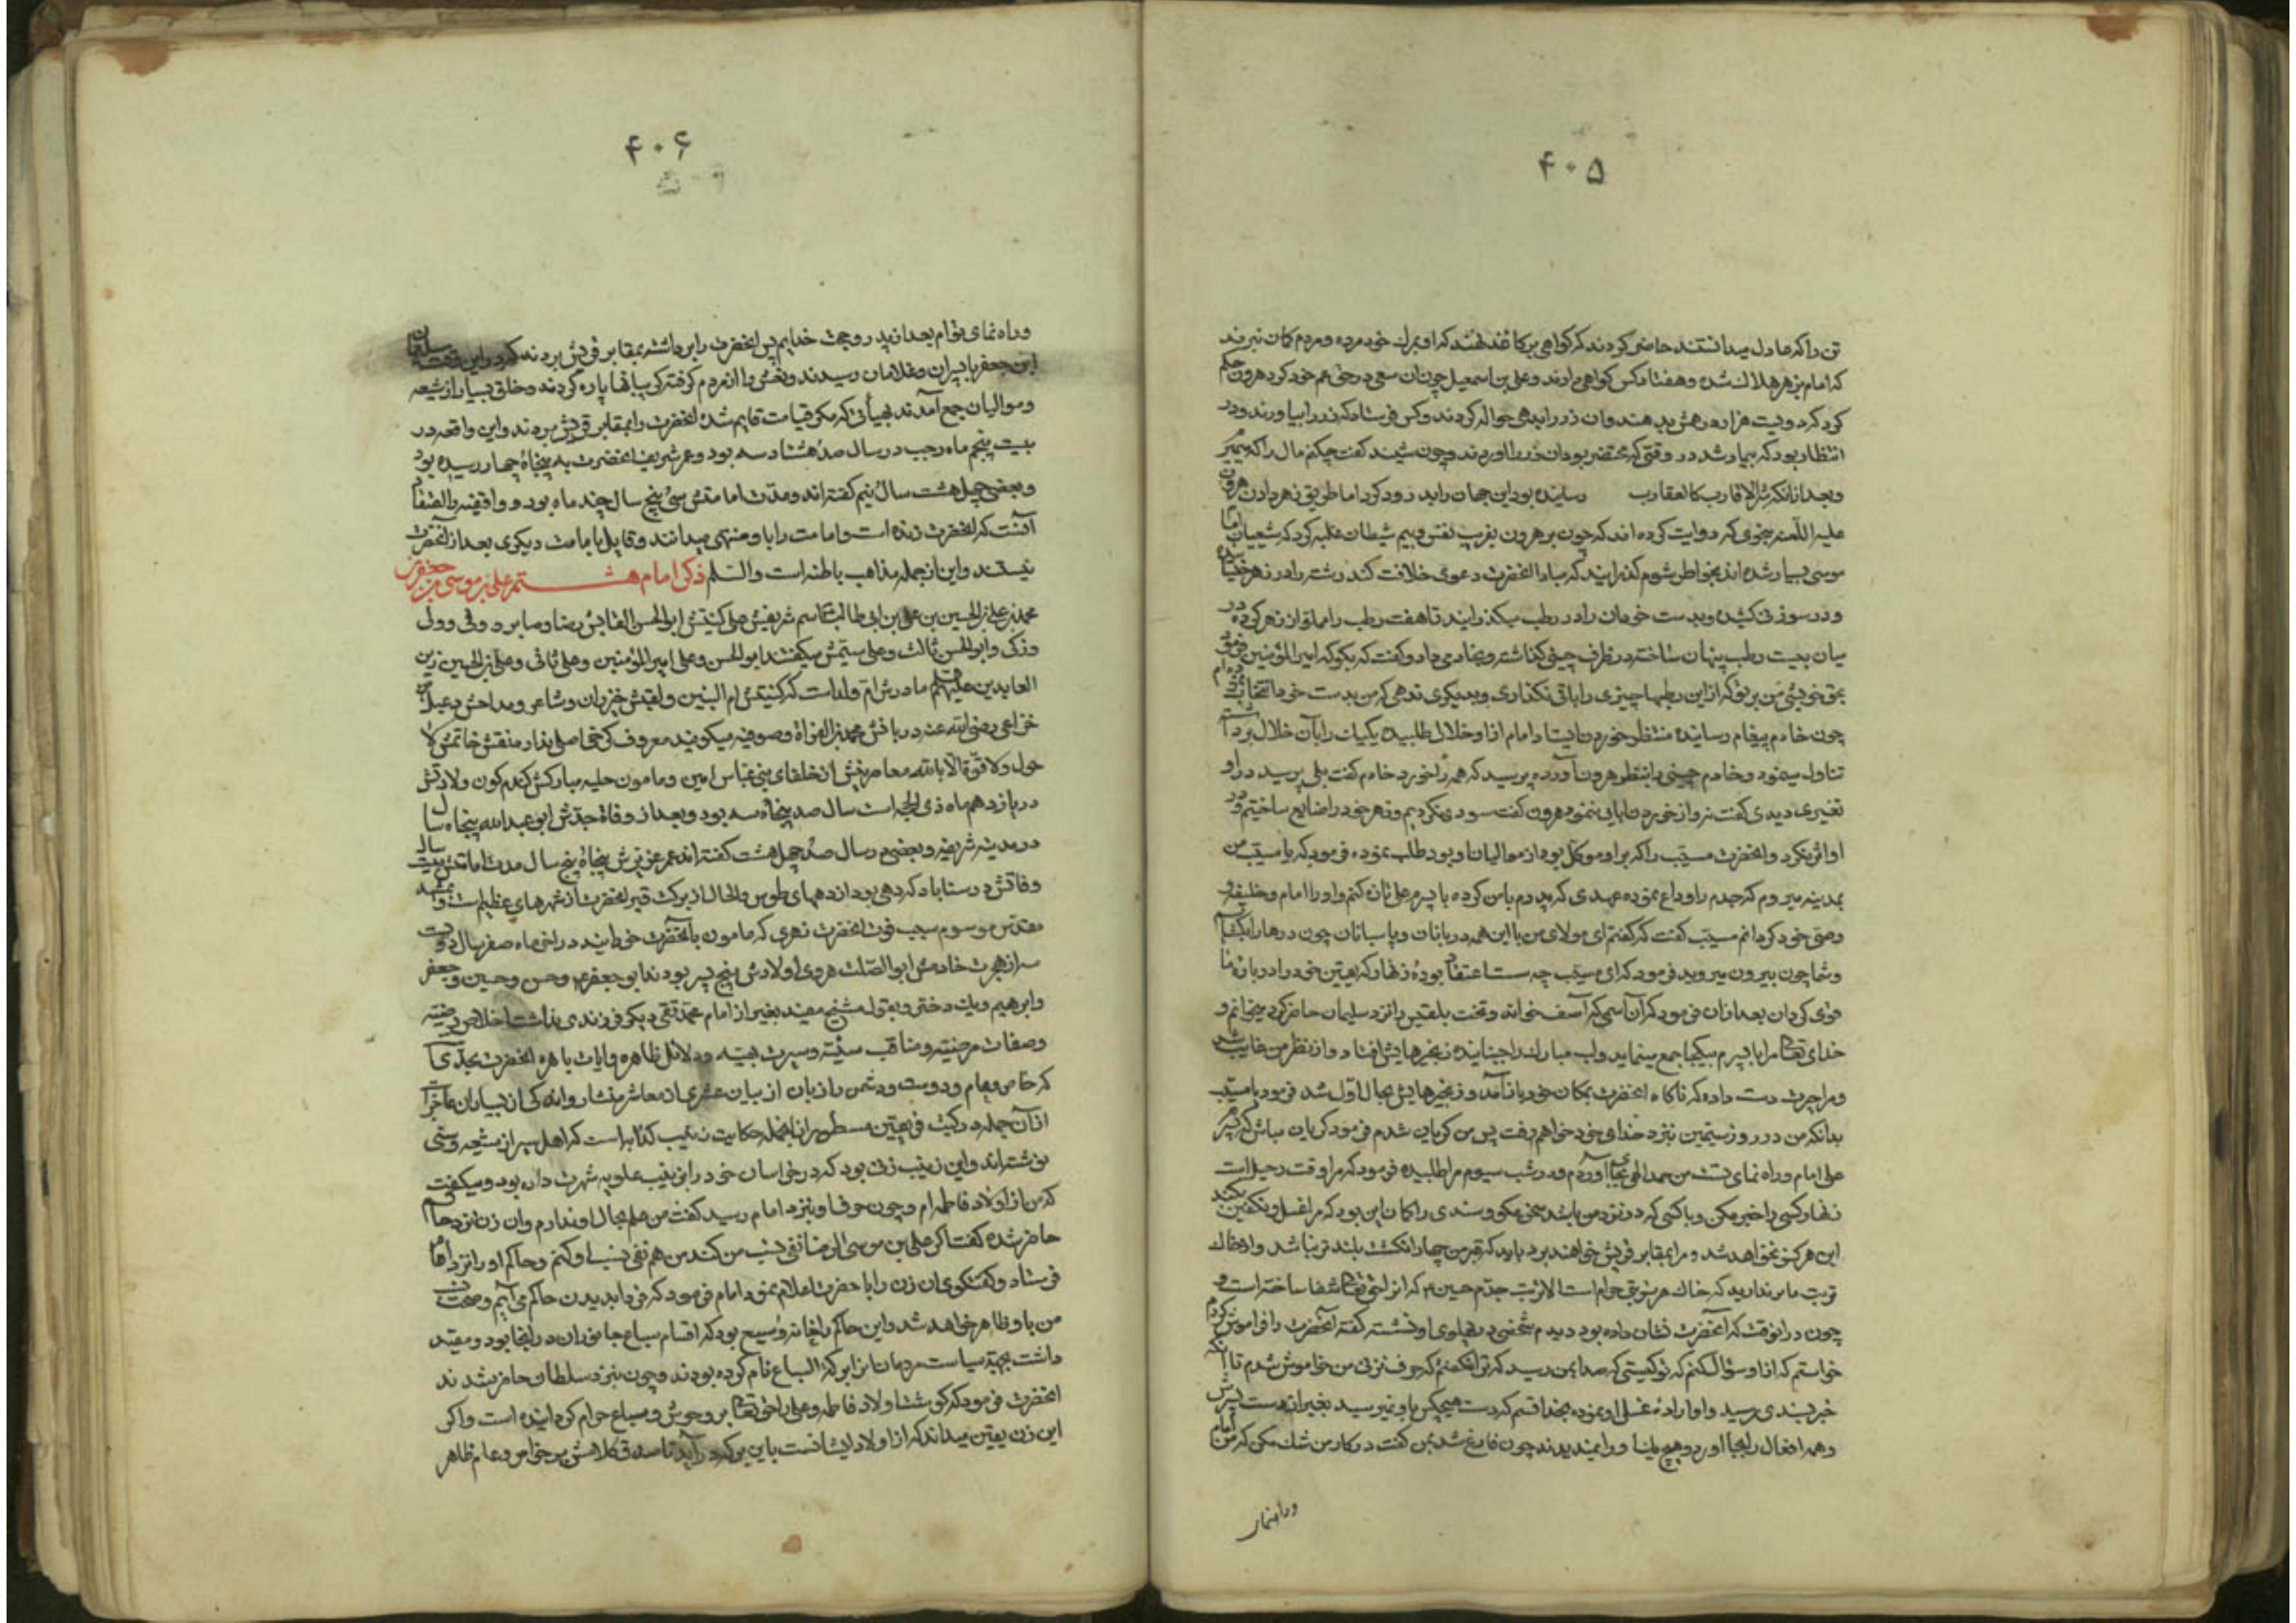 ۴۰۵
تن را که عادل میدانستند حاضر کردند که گواهی بر کاغذ نهند که او بمرک خود مرده و مردم کمان نبرند
که امام بزهر هلاک شده و هفتاد کس گواهی دادند و علی بن اسمعیل چون آن سعی در حق عم خود کرد هرون حکم
کرد که دویست هزار درهمش بدهند و آن زر را بدهی حواله کردند و کس فرستاد که زر را بیاورند و در
انتظار بود که بیمار شد در وقتی که محتضر بود آن زر را آوردند و چون شنید گفت چکنم مال را که میمیرم
و بعد از آنکه شر الاقارب کالعقارب رسانیده بود این جهان را بدرود کرد اما طریق زهر دادن هرون
علیه اللعنه بنحوی که روایت کرده اند که چون بر هرون بفریب نفس و بیم شیطان غلبه کرد که شیعیان امام
موسی بسیار شده اند بخواطر شوم گذرانید که مبادا آنحضرت دعوی خلافت کند رشته را در زهر خیسانیده
و در سوزنی کشیده و بدست خود آن را در رطب میگذرانید تا هفت رطب را مملو از زهر کرده در
میان بیست رطب پنهان ساخته در ظرف چینی گذاشته و بخادمی داد و گفت که بگو که امیر المؤمنین فرموده
بحق خویشی من بر تو که از این رطبها چیزی را باقی نگذاری و بدیگری ندهی که من بدست خود انتخاب کرده ام
چون خادم پیغام رسانیده منتظر خوردن ایستاد امام از او خلال طلبیده یکیک را بآن خلال برداشته
تناول مینمود و خادم چینی را بنظر هرون آورده پرسید که همه را خورد خادم گفت بلی پرسید در او
تغییری دیدی گفت نه و از خوردن ابا ننمود هرون گفت سودی نکردیم و زهر خود را ضایع ساختیم و در
او اثر نکرد و آنحضرت مسیب را که بر او موکل بود از موالیان او بود طلب نموده فرمود که یا مسیب من
بمدینه میروم که جدم را وداع نموده عهدی که پدرم با من کرده با پسرم علی تازه کنم و او را امام و خلیفه و
وصی خود گردانم مسیب گفت که گفتم ای مولای من با این همه دربانان و پاسبانان چون درها را بگشایم
و شما چون بیرون میروید فرمود که ای مسیب چه سست اعتقاد بوده زنهار که یقین خود را درباره ما
قوی گردان بعد از آن فرمود که آن اسمی که آصف خوانده و تخت بلقیس را نزد سلیمان حاضر کرد میخوانم و
خدای تعالی مرا با پسرم بیکجا جمع مینماید و لب مبارک را جنبانیده زنجیرهایش افتاد و از نظر من غایب شد
و مرا حیرت دست داده که ناگاه آنحضرت بمکان خود باز آمد و زنجیرهایش بحال اول شد فرمود یا مسیب
بدانکه من در روز سیمین نزد خدای خود خواهم رفت پس من گریان شدم فرمود گریان مباش که پسرم
علی امام و راه نمای تست من حمد الهی بجا آوردم و در شب سیوم مرا طلبیده فرمود که مرا وقت رحیل است
زنهار کسی را خبر مکن و با کسی که در نزد من باشد سخن مگو و سندی را گمان این بود که مرا غسل و تکفین میکند
این هرگز نخواهد شد و مرا بمقابر قریش خواهند برد باید که قبر من چهار انگشت بلندتر نباشد و از خاک
تربت ما برندارید که خاک هر تربتی حرام است الا تربت جدم حسین ع که از اثر حق تعالی شفا ساخته است و
چون در آنوقت که آنحضرت نشان داده بود دیدم شخصی در پهلوی او نشسته گفته آنحضرت را فراموش کردم
خواستم که از او سؤال کنم که تو کیستی که صدا بمن رسید که نه تو را گفتم که حرف نزنی من خاموش شدم تا آنکه
خبر بسندی رسید و او اراده غسل او نموده بخدا قسم که دست هیچکس باو نمیرسید بغیر از دست پسرش
و همه افعال را بجا آورد و هیچ یک او را نمیدیدند چون فارغ شد بمن گفت در کار من شک مکن که من امام
و راه نمای
۴۰۶
و راه نمای توام بعد از پدر و حجت خدایم پس آنحضرت را برداشته بمقابر قریش بردند که در این وقت سلیمان
ابن جعفر با پسران و غلامان رسیدند و نعش را از مردم گرفته گریبانها پاره کردند و خلق بسیار از شیعه
و موالیان جمع آمدند بهیأتی که مگر قیامت قایم شده آنحضرت را بمقابر قریش بردند و این واقعه در
بیست پنجم ماه رجب در سال صد هشتاد سه بود و عمر شریف آنحضرت به پنجاه چهار رسیده بود
و بعضی چهل هشت سال نیم گفته اند و مدت امامتش سی پنج سال چند ماه بود و واقفیه را اعتقاد
آنست که آنحضرت زنده است و امامت را باو منتهی میدانند و قایل بامامت دیگری بعد از آنحضرت
نیستند و این از جمله مذاهب باطله است والسلم ذکر امام هشتم علی بن موسی بن جعفر بن
محمد بن علی بن الحسین بن علی بن ابی طالب اسم شریفش علی کنیتش ابو الحسن القابش رضا و صابر و وفی و ولی
و ذکی و ابو الحسن ثالث و علی سیمش میگفتند ابو الحسن و علی امیر المؤمنین و علی ثانی و علی بن الحسین زین
العابدین علیهم السلام مادرش ام ولد است که کنیتش ام البنین و لقبش خیزران و شاعر و مداحش دعبل بن
خزاعی رضی الله عنه دربانش محمد بن الفراة و صوفیه میگویند معروف کرخی اصلی ندارد نقش خاتمش لا
حول ولا قوة الا بالله معاصرینش از خلفای بنی عباس امین و مامون حلیه مبارکش گندم گون ولادتش
در یازدهم ماه ذی الحجه است سال صد پنجاه سه بود و بعد از وفاة جدش ابو عبد الله پنجاه سال
در مدینه شریفه و بعضی در سال صد چهل هشت گفته اند عمر عزیزش پنجاه پنج سال مدت امامتش بیست سال
وفاتش در سناباد که دهی بود از دههای طوس والحال از برکت قبر آنحضرت از شهرهای عظیم است و بمشهد
مقدس موسوم سبب فوت آنحضرت زهری که مامون بآنحضرت خورانید در آخر ماه صفر سال دویست
سه از هجرت خادمش ابو الصلت هروی اولادش پنج پسر بودند ابو جعفر محمد و حسن و حسین و جعفر
و ابرهیم و یک دختر و بقول شیخ مفید بغیر از امام محمد تقی دیگر فرزندی نداشت اخلاق رضیه
و صفات مرضیه و مناقب سنیه و سیرت بهیه و دلائل ظاهره و ایات باهره آنحضرت بحدی
که خاص و عام و دوست و دشمن را زبان از بیان عشری از معاشرش قاصر و اندکی از بسیاران عاجز
از آن جمله در کتب فریقین مسطور از انجمله حکایت زینب کذابه است که اهل سیر از شیعه و سنی
نوشته اند و این زینب زنی بود که در خراسان خود را بزینب علویه شهرت داده بود و میگفت
که من از اولاد فاطمه ام و چون حرف او بنزد امام رسید گفت من علم بحال او ندارم و آن زن نزد حاکم
حاضر شده گفت اگر علی بن موسی الرضا نفی نسب من کند من هم نفی نسب او کنم و حاکم او را نزد امام
فرستاد و گفتگوی آن زن را با حضرت اعلام نمود امام فرمود که فردا بدیدن حاکم می آیم و صحت نسب
من باو ظاهر خواهد شد و این حاکم را خانه وسیع بود که اقسام سباع جانوران در آنجا بود و مقید
داشت بجهة سیاست مردمان آنرا برکة السباع نام کرده بودند و چون بنزد سلطان حاضر شدند
آنحضرت فرمود که گوشت اولاد فاطمه و علی را حق تعالی بر وحوش و سباع حرام گردانیده است و اگر
این زن یقین میداند که از اولاد ایشانست باین برکه در آید تا صدق کلامش بر خواص و عوام ظاهر